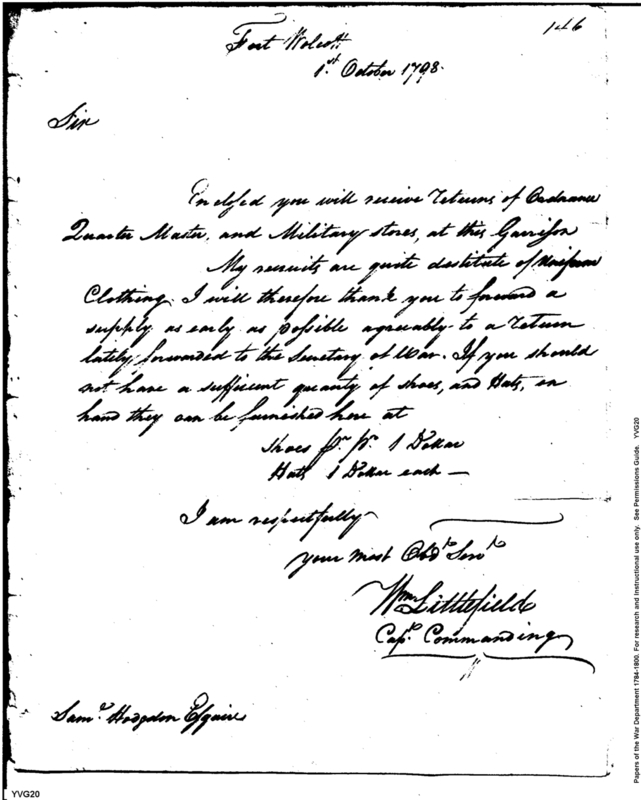 146
Fort Wolcott
1st October 1798.
Sir
Enclosed you will receive returns of Ordnance
Quarter Master, and Military stores, at this Garrison
My recruits are quite destitute of Uniform
Clothing. I will therefore thank you to forward a
supply as early as possible agreeably to a return
lately forwarded to the Secretary at War. If you should
not have a sufficient quantity of shoes, and Hats, on
hand they can be furnished here at
Shoes pr. pr. 1 Dollar
Hats 1 Dollar each —
I am respectfully
your most Obdt Servt
Wm Littlefield
Capt. Commanding
Saml. Hodgdon Esquire
Papers of the War Department 1784-1800. For research and instructional use only. See Permissions Guide. YVG20
YVG20